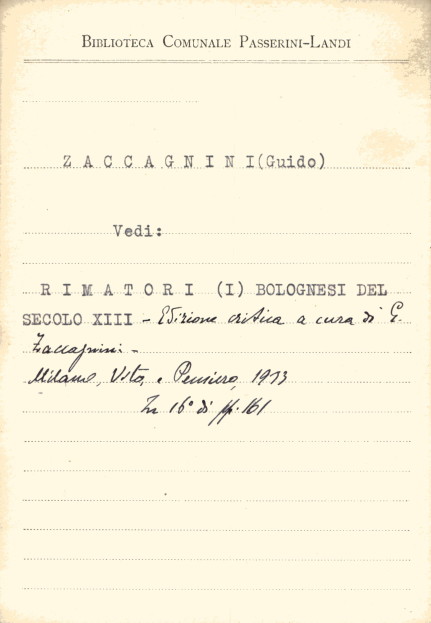 BIBLIOTECA COMUNALE PASSERINI-LANDI
ZACCAGNINI (Guido)
Vedi:
RIMATORI (I) BOLOGNESI DEL
SECOLO XIII - Edizione critica a cura di G.
Zaccagnini. -
Milano, Vita e Pensiero, 1933
In 16° di pp. 161